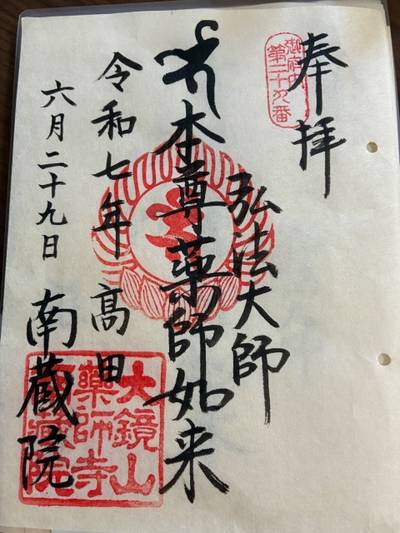 奉拝
御府内
第二十九番
弘法大師
本尊薬師如来
令和七年 高田
六月二十九日 南蔵院
大鏡山
薬師寺
南蔵院